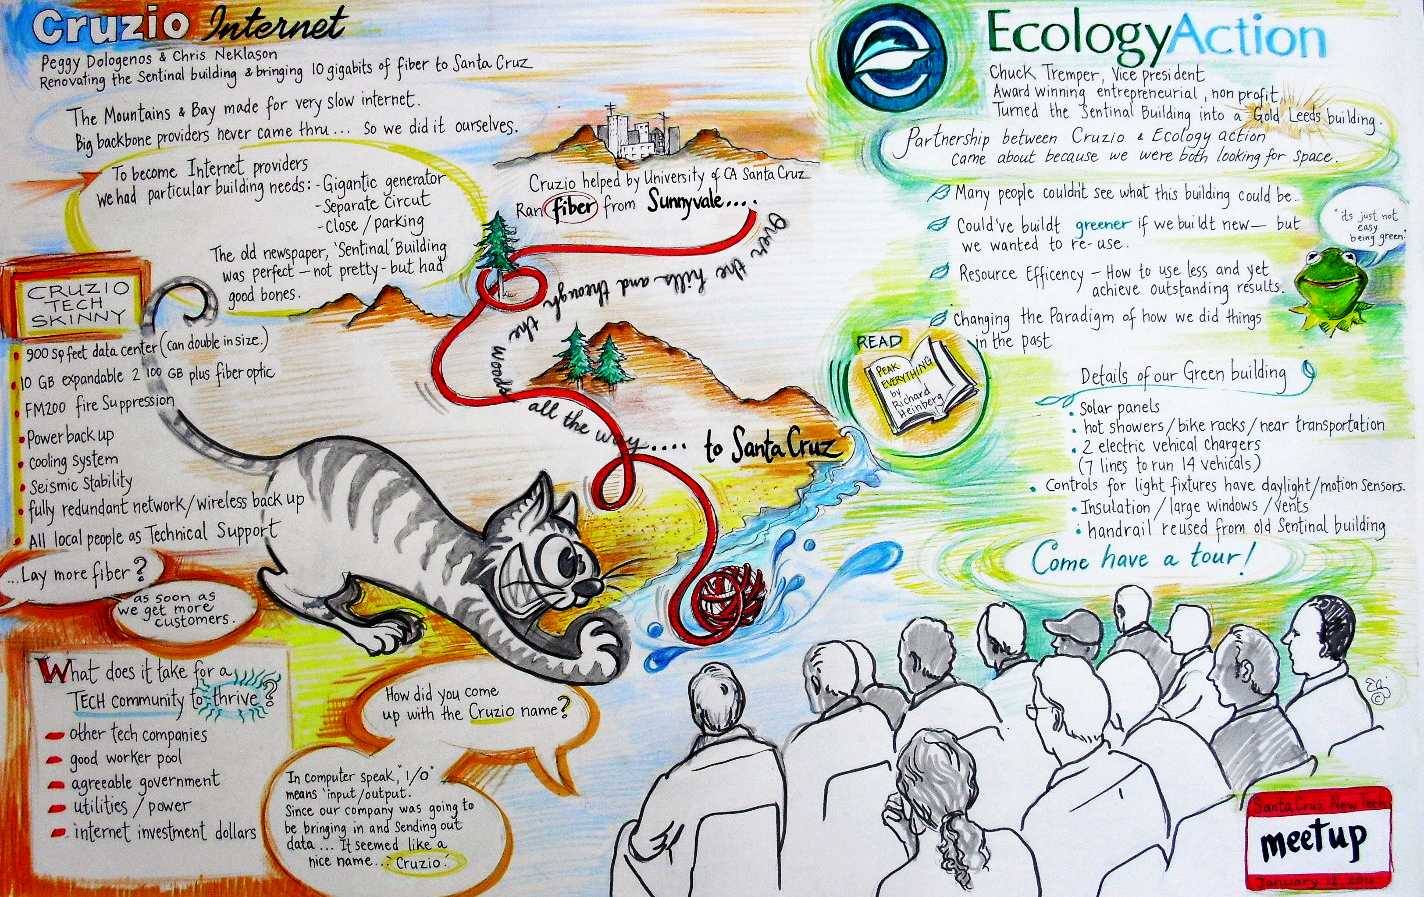 Cruzio Internet
Peggy Dologenos & Chris Neklason
Renovating the Sentinal building & bringing 10 gigabits of fiber to Santa Cruz
The Mountains & Bay made for very slow internet.
Big backbone providers never came thru... So we did it ourselves.
To become Internet providers
we had particular building needs: - Gigantic generator
- Separate Circut
- Close / parking
The old newspaper, 'Sentinal' Building
was perfect – not pretty - but had
good bones.
Cruzio helped by University of CA Santa Cruz
Ran fiber from Sunnyvale....
over the hills and through the woods all the way....
to Santa Cruz
CRUZIO
TECH
SKINNY
900 sq feet data center (can double in size.)
10 GB expandable 2 100 GB plus fiber optic
FM200 fire Suppression
Power back up
cooling system
Seismic Stability
fully redundant network/wireless back up
All local people as Technical Support
...Lay more fiber?
as soon as
we get more
customers.
What does it take for a
TECH community to thrive?
other tech companies
good worker pool
agreeable government
utilities / power
internet investment dollars
How did you come
up with the Cruzio name?
In computer speak, "I/O"
means 'input/output.
Since our company was going to
be bringing in and sending out
data... It seemed like a
nice name... Cruzio!
e
EcologyAction
Chuck Tremper, Vice president
Award winning entrepreneurial, non profit
Turned the Sentinal Building into a Gold Leeds building.
Partnership between Cruzio & Ecology action
came about because we were both looking for space.
Many people couldn't see what this building could be.
Could've buildt greener if we buildt new — but
we wanted to re-use.
Resource Efficency – How to use less and yet
achieve outstanding results.
Changing the Paradigm of how we did things
in the past
"its just not
easy
being green."
READ
PEAK
EVERYTHING
by
Richard
Heinberg
Details of our Green building
Solar panels
hot showers / bike racks / near transportation
2 electric vehical chargers
(7 lines to run 14 vehicals)
Controls for light fixtures have daylight/motion sensors.
Insulation / large windows / vents
handrail reused from old Sentinal building
Come have a tour!
©
Santa Cruz New Tech
meetup
January